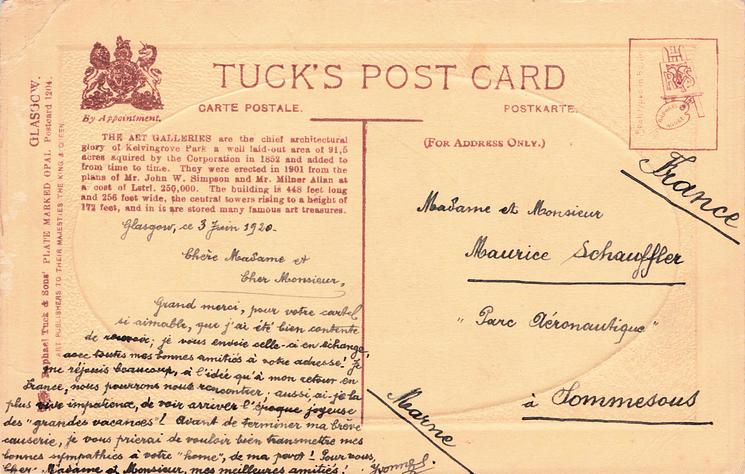 TUCK'S POST CARD
CARTE POSTALE.
POSTKARTE.
By Appointment.
(FOR ADDRESS ONLY.)
GLASGOW.
Raphael Tuck & Sons' PLATE MARKED, OPAL Postcard 1204.
ART PUBLISHERS TO THEIR MAJESTIES THE KING & QUEEN.
THE ART GALLERIES are the chief architectural
glory of Kelvingrove Park a well laid-out area of 91,5
acres aquired by the Corporation in 1852 and added to
from time to time. They were erected in 1901 from the
plans of Mr. John W. Simpson and Mr. Milner Allan at
a cost of Lstrl. 250,000. The building is 448 feet long
and 256 feet wide, the central towers rising to a height of
172 feet, and in it are stored many famous art treasures.
Glasgow, ce 3 Juin 1920.
Chère Madame et
Cher Monsieur,
Grand merci, pour votre carte
si aimable, que j'ai été bien contente
de recevoir; je vous envoie celle-ci en échange,
avec toutes mes bonnes amitiés à votre adresse! Je
me réjouis beaucoup, à l'idée qu'à mon retour en
France, nous pourrons nous rencontrer; aussi, ai-je la
plus vive impatience, de voir arriver l'époque joyeuse
des "grandes vacances"! Avant de terminer ma brève
causerie, je vous prierai de vouloir bien transmettre mes
bonnes sympathies à votre "home", de ma part! Pour vous,
Cher Madame et Monsieur, mes meilleures amitiés!
France
Madame et Monsieur
Maurice Schauffler
"Parc Aéronautique"
à Sommesous
Marne